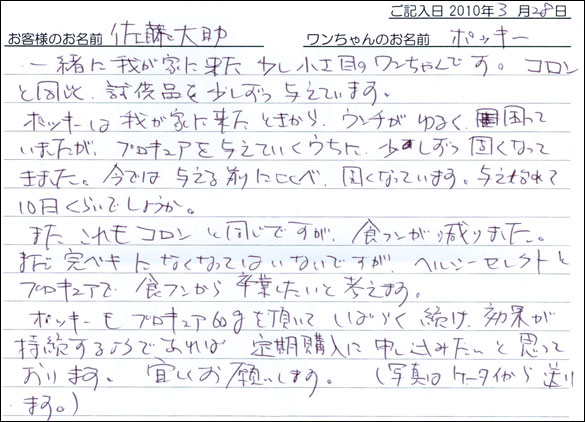 ご記入日 2010年 3 月 28日
お客様のお名前 佐藤大助 ワンちゃんのお名前 ポッキー
一緒に我が家に来た 少し小さ目のワンちゃんです。コロン
と同じく、試供品を少しずつ与えています。
ポッキーは我が家に来たときから、ウンチがゆるく、困って
いましたが、プロキュアを与えていくうちに、少しずつ固くなって
きました。今では与える前に比べ、固くなっています。与えはじめて
10日くらいでしょうか。
また、これもコロンと同じですが、食フンが減りました。
まだ完ペキになくなってはいないですが、ヘルシーセレクトと
プロキュアで食フンから卒業したいと考えます。
ポッキーもプロキュア60gを頂いてしばらく続け、効果が
持続するようであれば 定期購入に申し込みたいと思って
おります。宜しくお願いします。 (写真はケータイから送り
ます。)